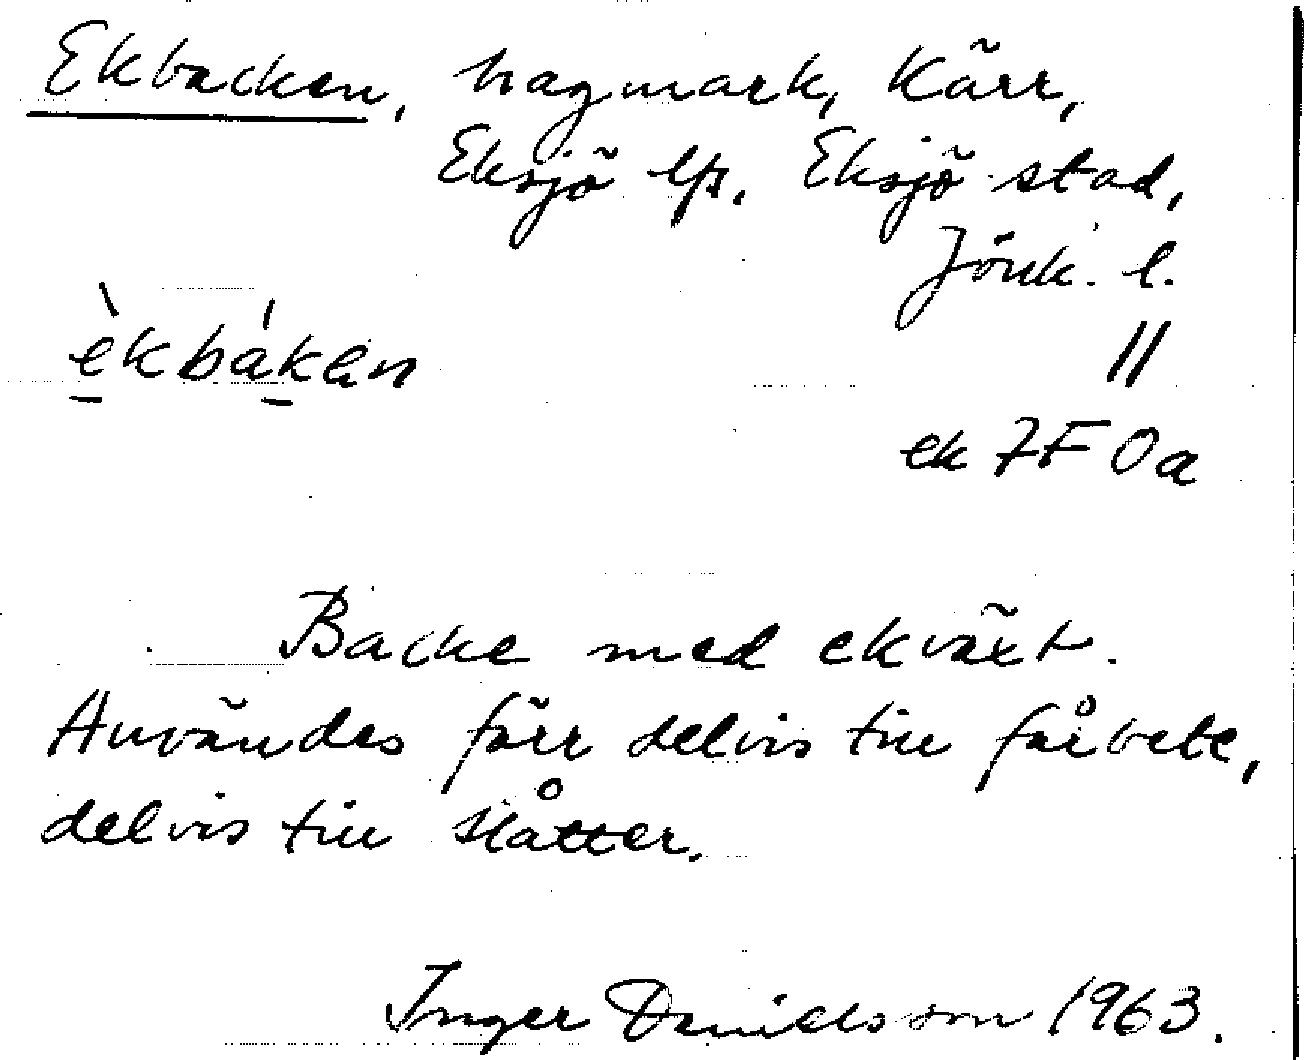 Ekbacken, hagmark, Kärr,
Eksjö lfs. Eksjö stad,
Jönk. l.
èkbákan
//
ek 7F 0a
Backe med ekväxt.
Användes förr delvis till fårbete,
delvis till slåtter.
Inger Danielsson 1963.